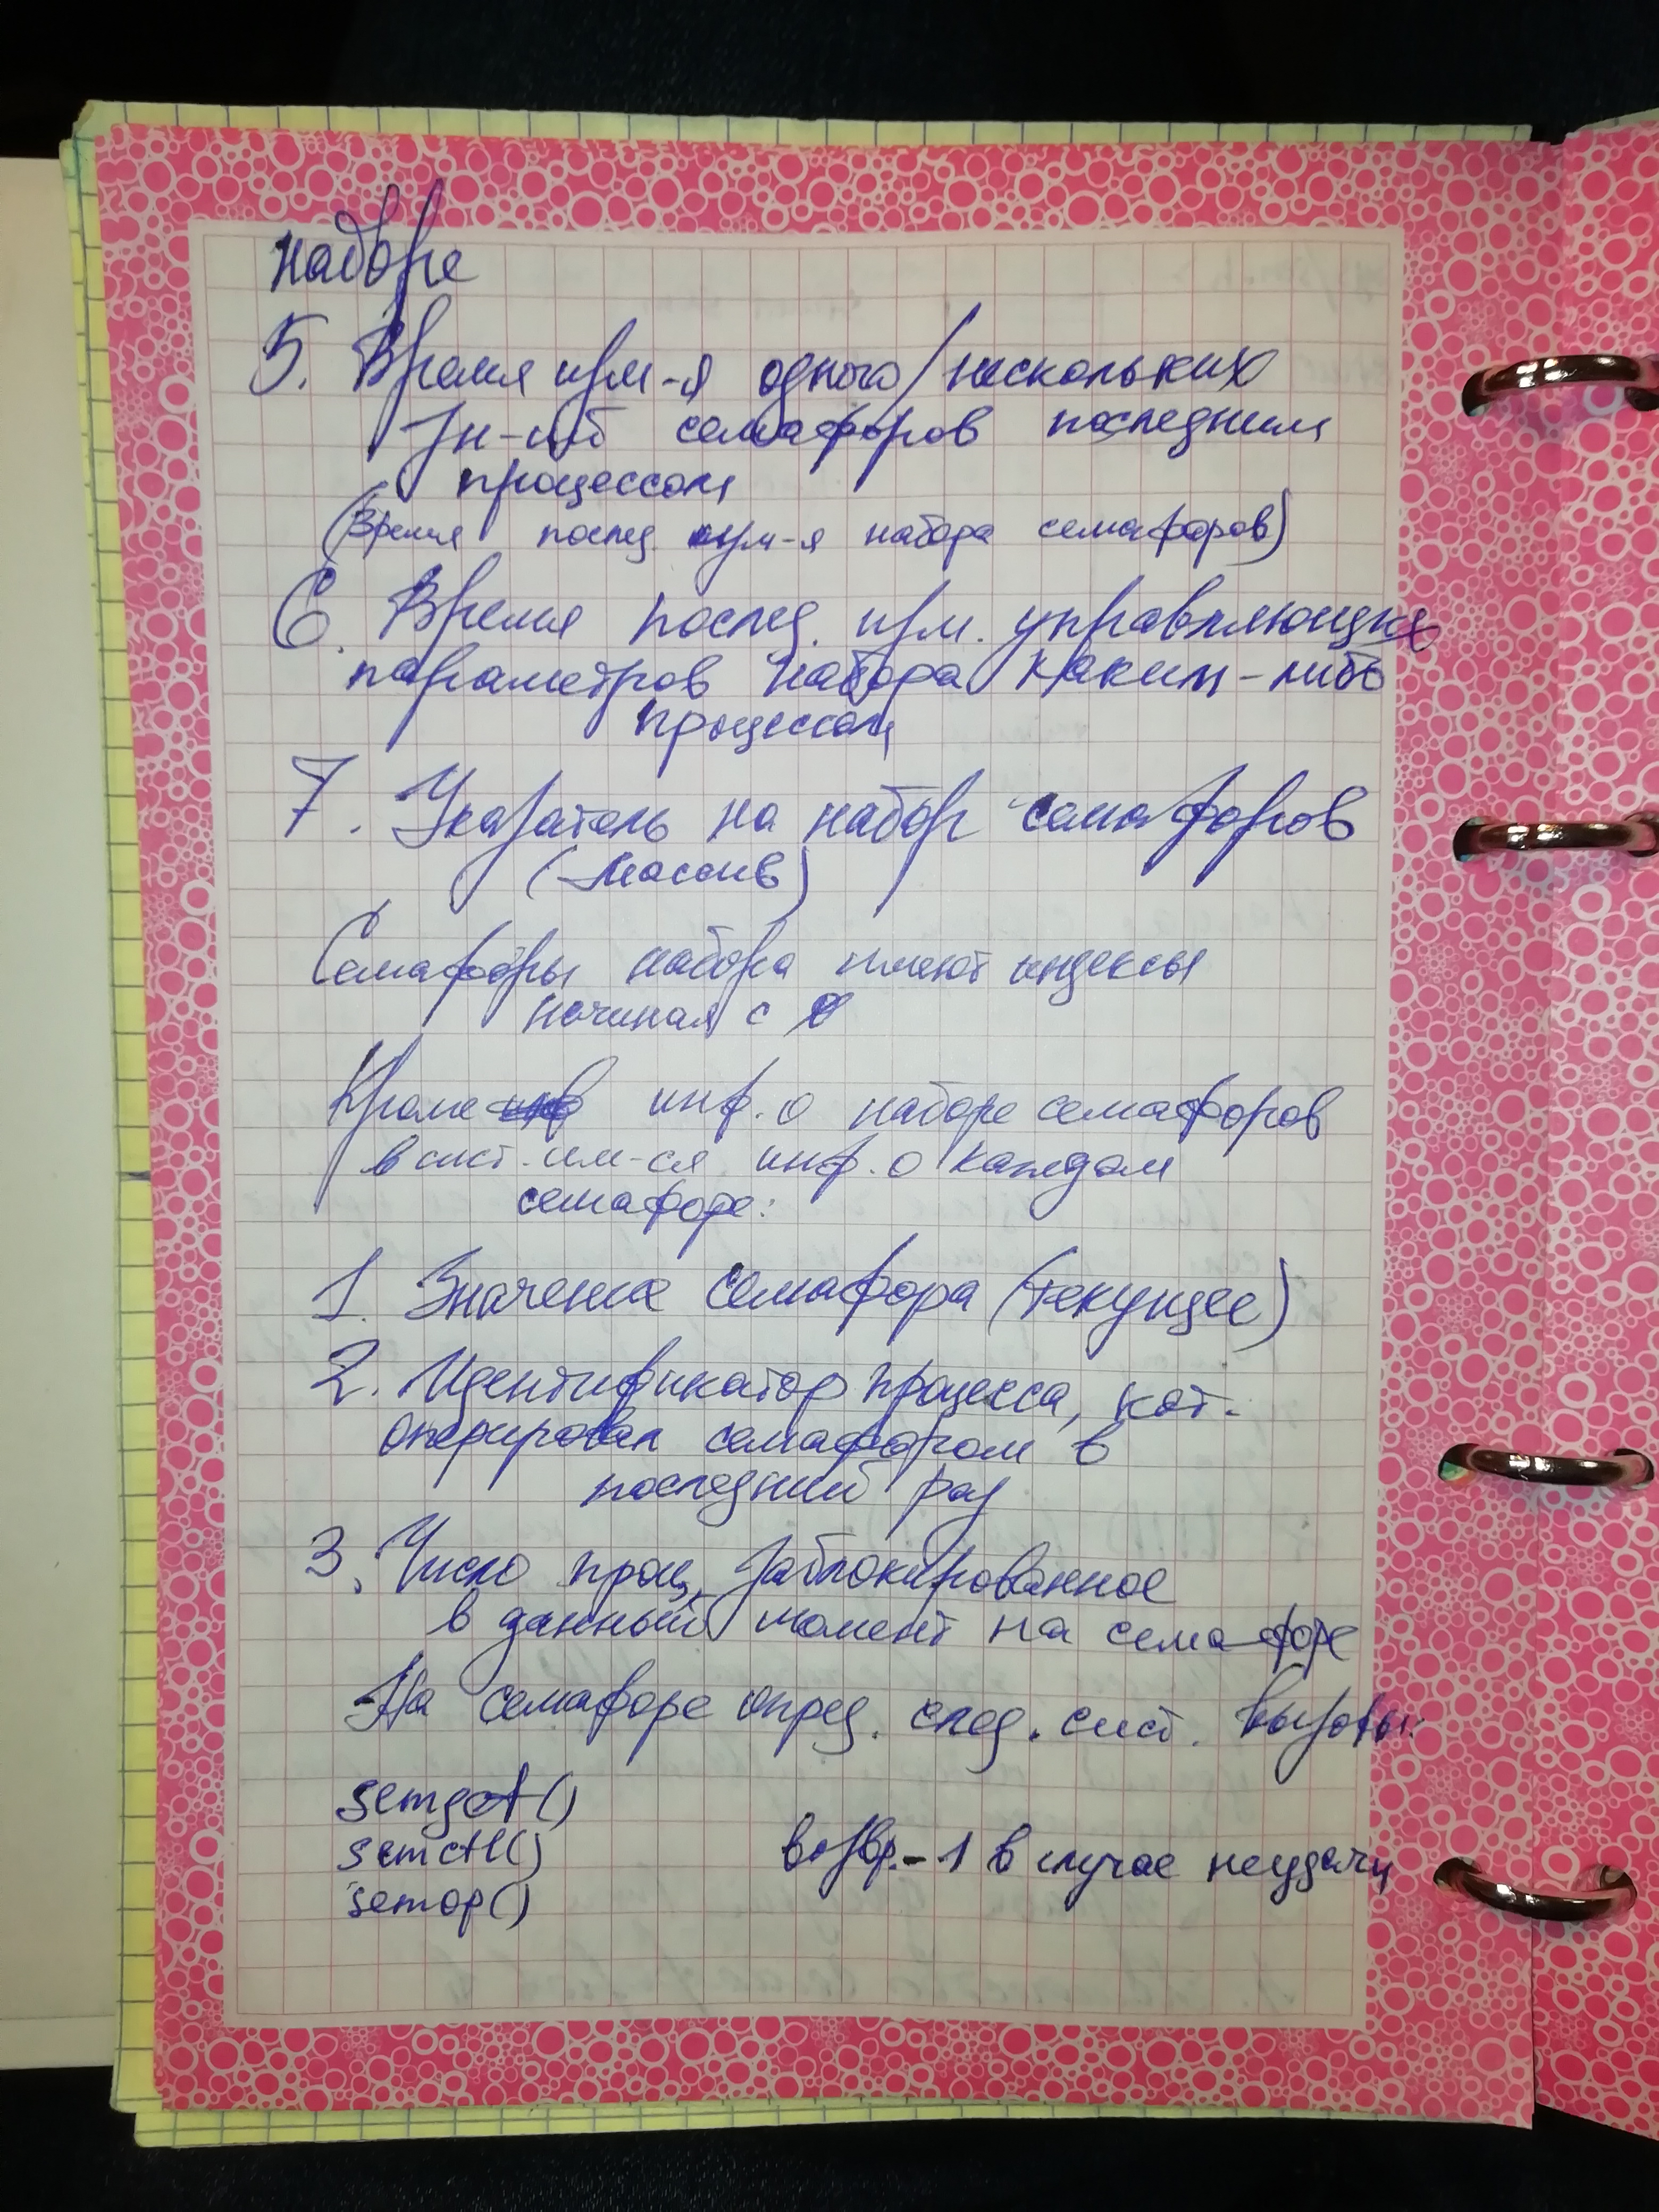 наборе
5. Время изм-я одного/нескольких
зн-ий семафоров последним
процессом
(Время послед. изм-я набора семафоров)
6. Время послед. изм. управляющих
параметров набора каким-либо
процессом
7. Указатель на набор семафоров
(массив)
Семафоры набора имеют индексы
начиная с 0
Кроме инф. о наборе семафоров
в сист. им-ся инф. о каждом
семафоре:
1. Значение семафора (текущее)
2. Идентификатор процесса, кот.
оперировал семафором в
последний раз
3. Число проц., заблокированное
в данный момент на семафоре
На семафоре опред. след. сист. вызовы:
semget()
semctl() возвр. -1 в случае неудачи
semop()